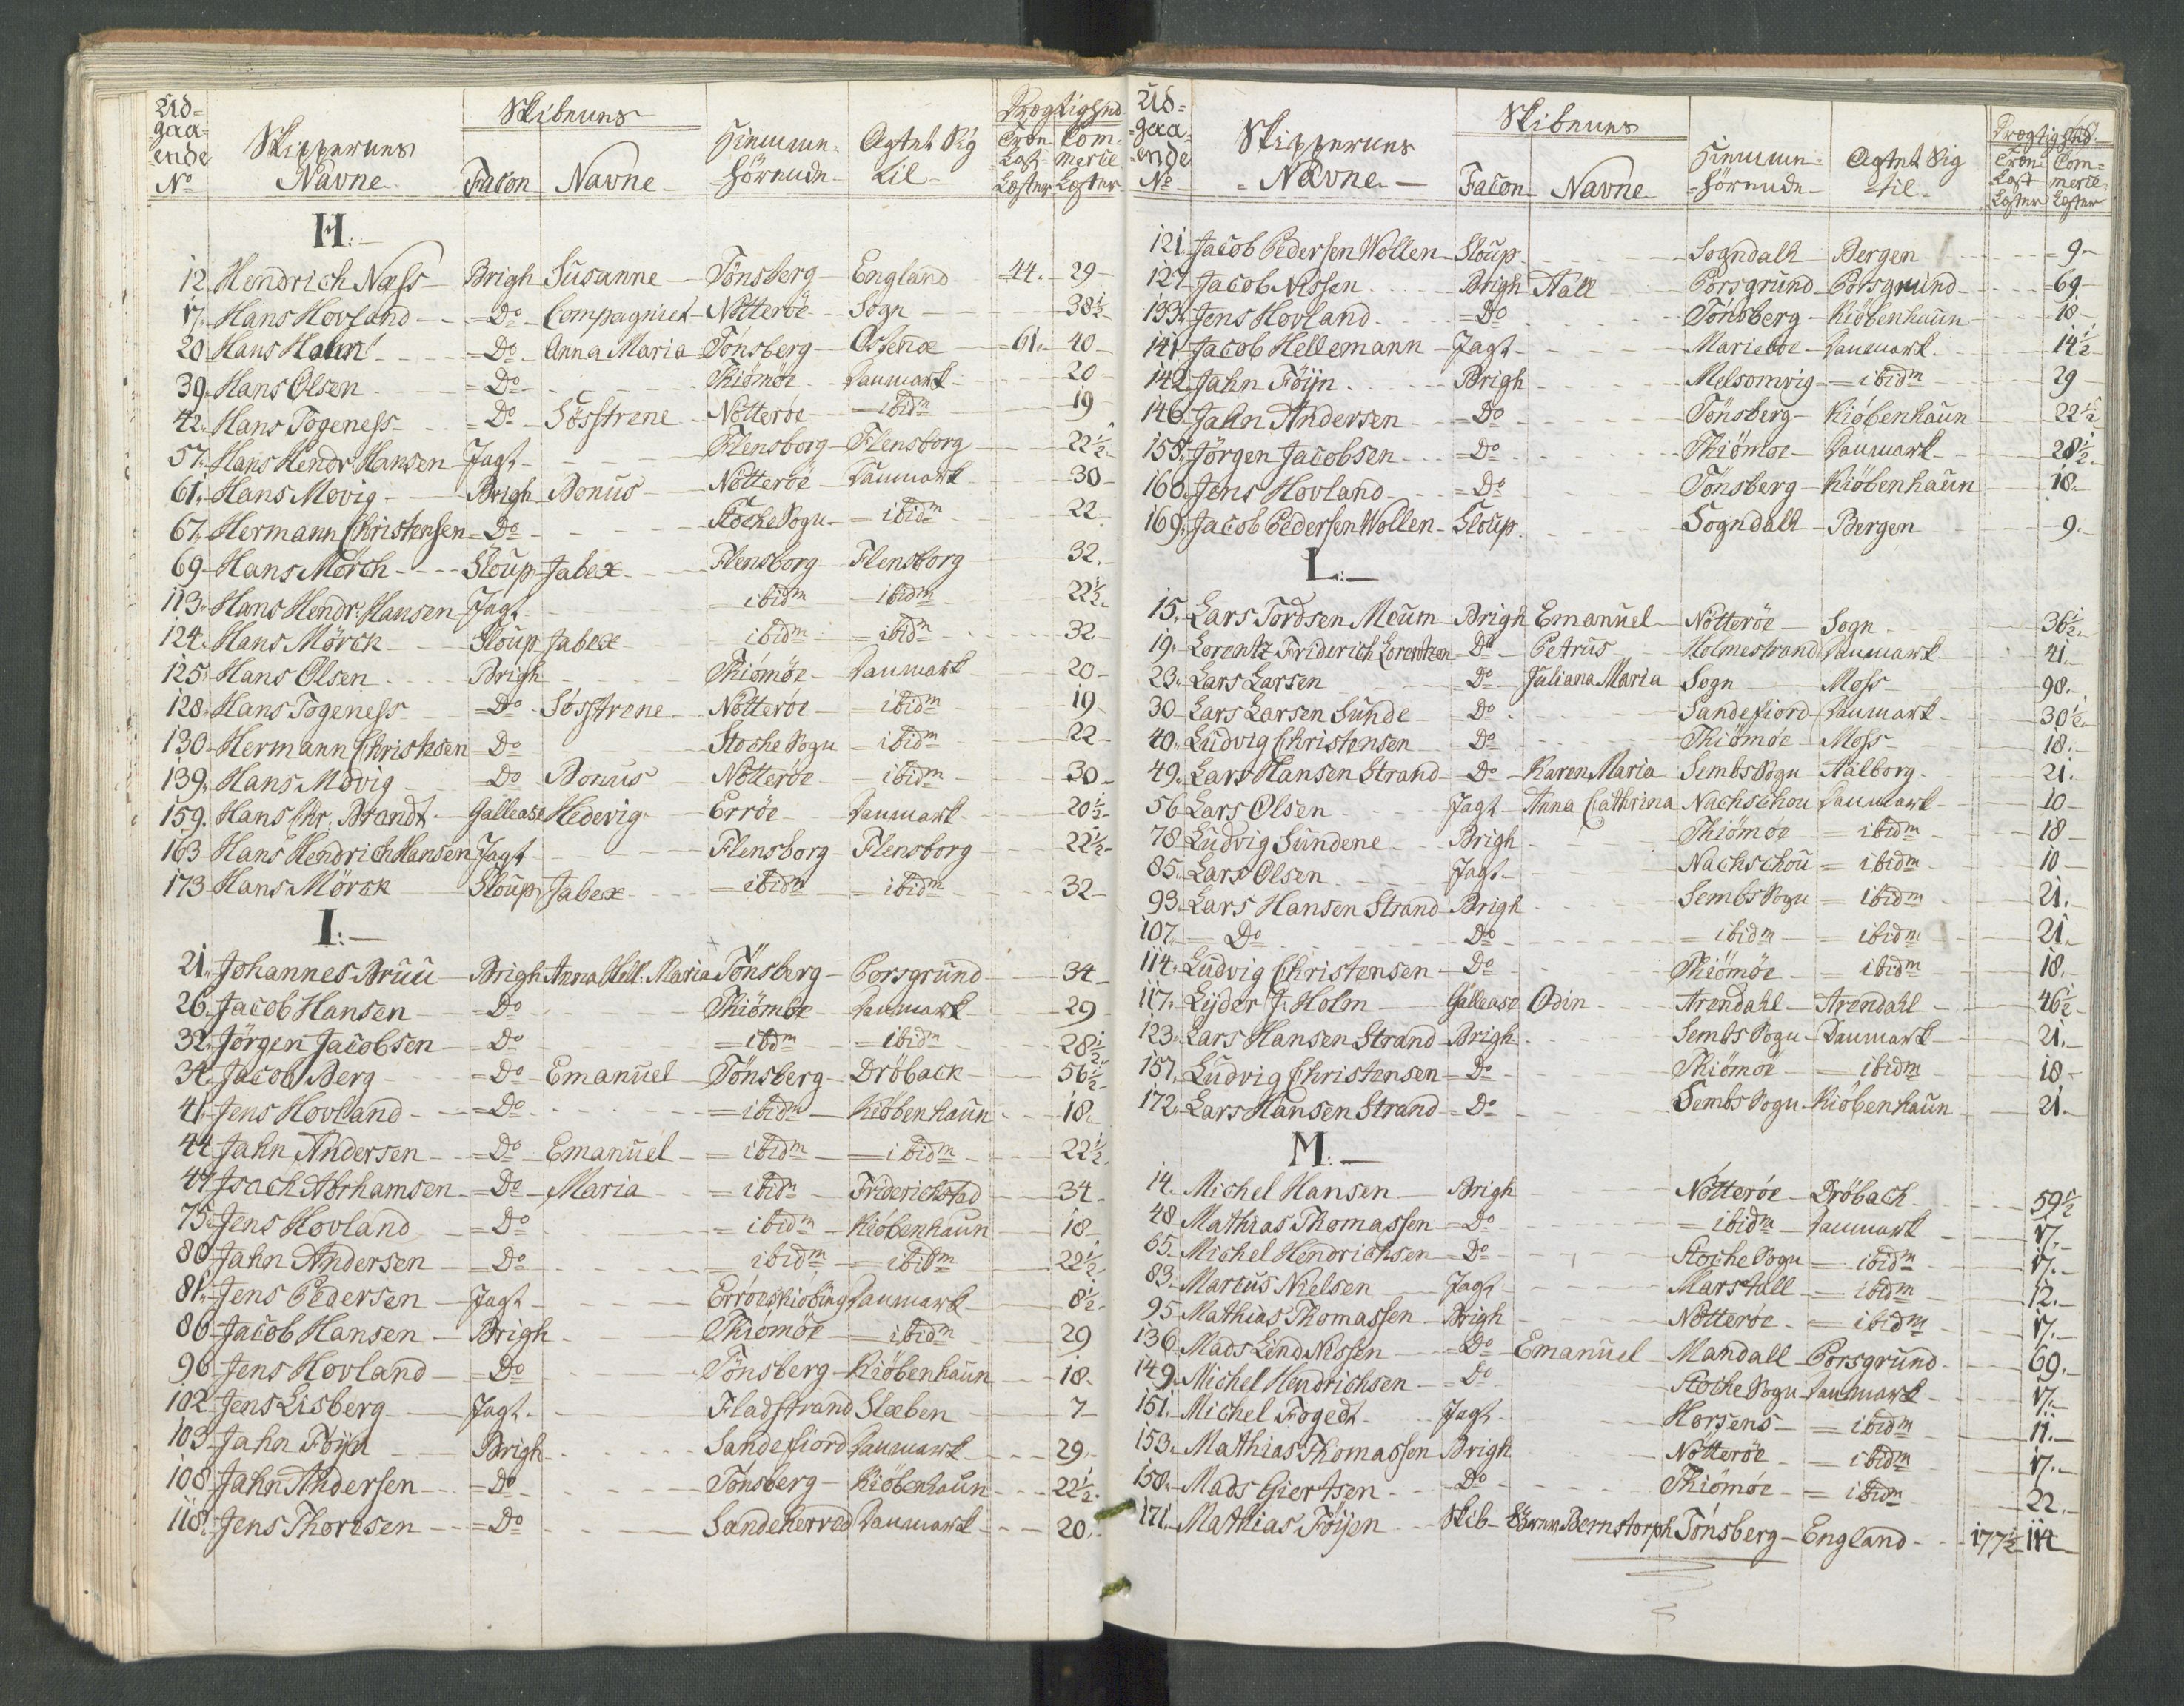 Ud=
gaa=
ende
No
Skippernes
Navne
Skibenes
Facon Navne
Hiemme-
hörende
Agtet Sig
til
Drægtighed
Træ Last Læster
Com=merce Læster
H:
12 Hendrich Næss Brigh Susanne Tönsberg England 44. 29
17. Hans Hovland Do Compagniet Nötteröe Sogn 38½
20 Hans Haun Do Anna Maria Tönsberg Ostende 61. 40
39. Hans Olsen Do Thiömöe Danmark 20
42. Hans Togeness Do Söstrene Nötteröe ibidm 19
57. Hans Hendr. Hansen Jagt Flensborg Flensborg 22½
61. Hans Movig Brigh Bonus Nötteröe Danmark 30
67. Hermann Christensen Do Stoche Sogn ibidm 22
69 Hans Mörch Sloup Jabex Flensborg Flensborg 32.
113. Hans Hendr: Hansen Jagt ibidm ibidm 22½
124. Hans Mörck Sloup Jabex ibidm ibidm 32.
125. Hans Olsen Brigh Thiömöe Danmark 20
128. Hans Togeness Do Söstrene Nötteröe ibidm 19
130 Hermann Christesen Do Stoche Sogn ibidm 22
139. Hans Movig Do Bonus Nötteröe ibidm 30
159. Hans Chr. Brandt Gallease Hedevig Erröe Danmark 20½
163 Hans Hendrich Hansen Jagt Flensborg Flensborg 22½
173 Hans Mörck Sloup Jabex ibidm ibidm 32
I:
21. Johannes Bruu Brigh Anna Hell: Maria Tönsberg Porsgrund 34
26. Jacob Hansen Do Thiömöe Danmark 29
32. Jörgen Jacobsen Do ibdm ibidm 28½
34. Jacob Berg Do Emanuel Tönsberg Dröback 56½
41. Jens Hovland Do ibidm Kiöbenhaun 18.
44 Jahn Andersen Do Emanuel ibidm ibidm 22½
47 Isach Abrhamsen Do Maria ibidm Friderichstad 34
75. Jens Hovland Do ibidm Kiöbenhaun 18
80 Jahn Andersen Do ibidm ibidm 22½
81. Jens Pedersen Jagt Erröeskiöbing Danmark 8½
86 Jacob Hansen Brigh Thiömöe ibidm 29
90 Jens Hovland Do Tönsberg Kiöbenhaun 18
102 Jens Lisberg Jagt Fladstrand Slæben 7
103 Jahn Föyn Brigh Sandefiord Danmark 29
108 Jahn Andersen Do Tönsberg Kiöbenhaun 22½
118. Jens Thoresen Do Sandeherred Danmark 20.
Ud=
gaa=
ende
No
Skippernes
Navne
Skibenes
Facon Navne
Hiemme-
hörende
Agtet Sig
til
Drægtighed
Træ Last Læster
Com=merce Læster
121. Jacob Pedersen Wollen Sloup Sogndalh Bergen 9
127. Jacob Nissen Brigh Aall Porsgrund Porsgrund 69
133. Jens Hovland Do Tönsberg Kiöbenhaun 18
141 Jacob Hellemann Jagt Marieboe Danmark 14½
142 Jahn Föijn Brigh Melsomvig ibidm 29
146. Jahn Andersen Do Tönsberg Kiöbenhaun 22½
155. Jörgen Jacobsen Do Thiömöe Danmark 28½
160. Jens Hovland Do Tönsberg Kiöbenhaun 18.
169. Jacob Pedersen Wollen Sloup Sogndalh Bergen 9.
L:
15. Lars Tordsen Meum Brigh Emanuel Nötteröe Sogn 36½
19. Lorentz Friderich Lorentzen Do Petrus Holmestrand Danmark 41.
23. Lars Larsen Do Juliana Maria Sogn Moss 98.
30 Lars Larsen Sunde Do Sandefiord Danmark 30½
40. Ludvig Christensen Do Thiömöe Moss 18.
49. Lars Hansen Strand Do Karen Maria Sembs Sogn Aalborg 21.
56 Lars Olsen Jagt Anna Cathrina Nachschou Danmark 10
78 Ludvig Sundene Brigh Thiömöe ibidm 18
85. Lars Olsen Jagt Nachschou ibidm 10
93. Lars Hansen Strand Brigh Sembs Sogn ibidm 21.
107. Do Do ibidm ibidm 21.
114. Ludvig Christensen Do Thiömöe ibidm 18.
117. Lyder J: Holm Gallease Odin Arendahl Arendahl 46½
123. Lars Hansen Strand Brigh Sembs Sogn Danmark 21.
157. Ludvig Christensen Do Thiömöe ibidm 18
172. Lars Hansen Strand Do Sembs Sogn Kiöbenhaun 21.
M:
14. Michel Hansen Brigh Nötteröe Dröbach 59½
48 Mathias Thomassen Do ibidm Danmark 17.
65. Michel Hendrichsen Do Stoche Sogn ibidm 17.
83. Marcus Nielsen Jagt Marstall ibidm 12.
95 Mathias Thomassen Brigh Nötteröe ibidm 17.
136 Mads Lind Nissen Do Emanuel Mandall Porsgrund 69.
149. Michel Hendrichsen Do Stoche Sogn Danmark 17.
151. Michel Fogedt Jagt Horsens ibidm 11.
153. Mathias Thomassen Brigh Nötteröe ibidm 17.
158. Mads Giertsen Do Thiömöe ibidm 22.
171. Mathias Föyen Skib Bernstorph Tönsberg England 177½ 114